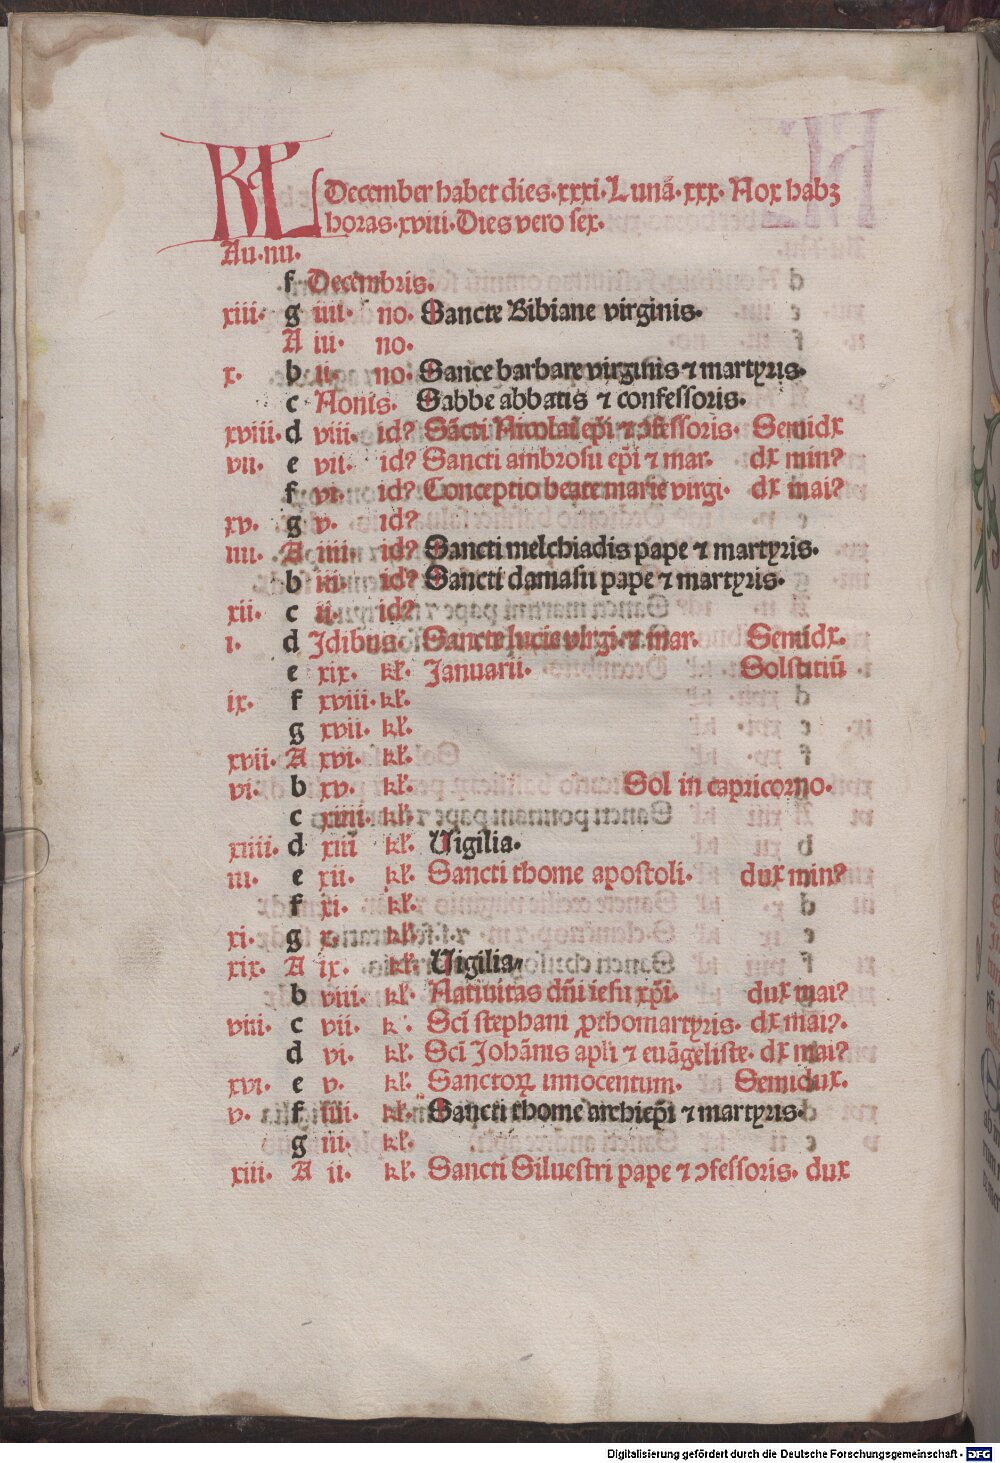 KL December habet dies.xxxi.Lunā.xxx. Nox habꝫ
horas.xviii.Dies vero sex.
Au.nu.
f Decembris.
xiii. g iiii. no. Sancte Bibiane virginis.
A iii. no.
x. b ii. no. Sance barbare virginis ⁊ martyris.
c Nonis. Sabbe abbatis ⁊ confessoris.
xviii. d viii. id? Sācti Nicolai ep̄i ⁊ ↄfessoris. Semidx
vii. e vii. id? Sancti ambrosii ep̄i ⁊ mar. dx min?
f vi. id? Conceptio beate marie virgi. dx mai?
xv. g v. id?
iiii. A iiii. id? Sancti melchiadis pape ⁊ martyris.
b iii. id? Sancti damasii pape ⁊ martyris.
xii. c ii. id?
i. d Idibus. Sancte lucie virgi. ⁊ mar. Semidx.
e xix. kl. Januarii. Solstitiū
ix. f xviii. kl.
g xvii. kl.
xvii. A xvi. kl.
vi. b xv. kl. Sol in capricorno.
c xiiii. kl.
xiiii. d xiii kl. Vigilia.
iii. e xii. kl. Sancti thome apostoli. dux min?
f xi. kl.
xi. g x. kl.
xix. A ix. kl. Vigilia
b viii. kl. Nativitas dn̄i iesu xp̄i. dux mai?
viii. c vii. k. Scī stephani ꝓthomartyris. dx mai?.
d vi. kl. Scī Johānis apl̄i ⁊ euāgeliste. dx mai?
xvi. e v. kl. Sanctoꝝ innocentum. Semidux.
v. f iiii. kl. Sancti thome archiep̄i ⁊ martyris.
g iii. kl.
xiii. A ii. kl. Sancti Siluestri pape ⁊ ↄfessoris. dux
Digitalisierung gefördert durch die Deutsche Forschungsgemeinschaft - DFG